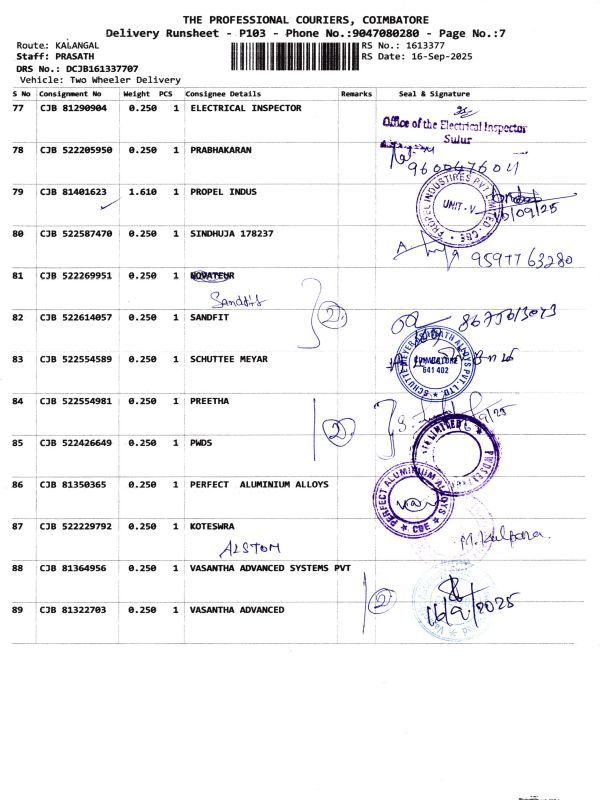 THE PROFESSIONAL COURIERS, COIMBATORE
Delivery Runsheet - P103 - Phone No.:9047080280 - Page No.:7
Route: KALANGAL RS No.: 1613377
Staff: PRASATH RS Date: 16-Sep-2025
DRS No.: DCJB161337707
Vehicle: Two Wheeler Delivery
S No Consignment No Weight PCS Consignee Details Remarks Seal & Signature
77 CJB 81290904 0.250 1 ELECTRICAL INSPECTOR
Office of the Electrical Inspector
Sulur
78 CJB 522205950 0.250 1 PRABHAKARAN
9600476011
79 CJB 81401623 1.610 1 PROPEL INDUS
PROPEL INDUSTIRES PVT LIMITED - CBE
UNIT - V
80 CJB 522587470 0.250 1 SINDHUJA 178237
9597763280
81 CJB 522269951 0.250 1 NOVATEUR
Sandfit
2
82 CJB 522614057 0.250 1 SANDFIT
83 CJB 522554589 0.250 1 SCHUTTEE MEYAR
COIMBATORE
641 402
84 CJB 522554981 0.250 1 PREETHA
2
85 CJB 522426649 0.250 1 PWDS
86 CJB 81350365 0.250 1 PERFECT ALUMINIUM ALLOYS
PERFECT ALUMINIUM ALLOYS
CBE
87 CJB 522229792 0.250 1 KOTESWRA
ALSTOM
M. Kalpana.
88 CJB 81364956 0.250 1 VASANTHA ADVANCED SYSTEMS PVT
2
16/9/2025
89 CJB 81322703 0.250 1 VASANTHA ADVANCED